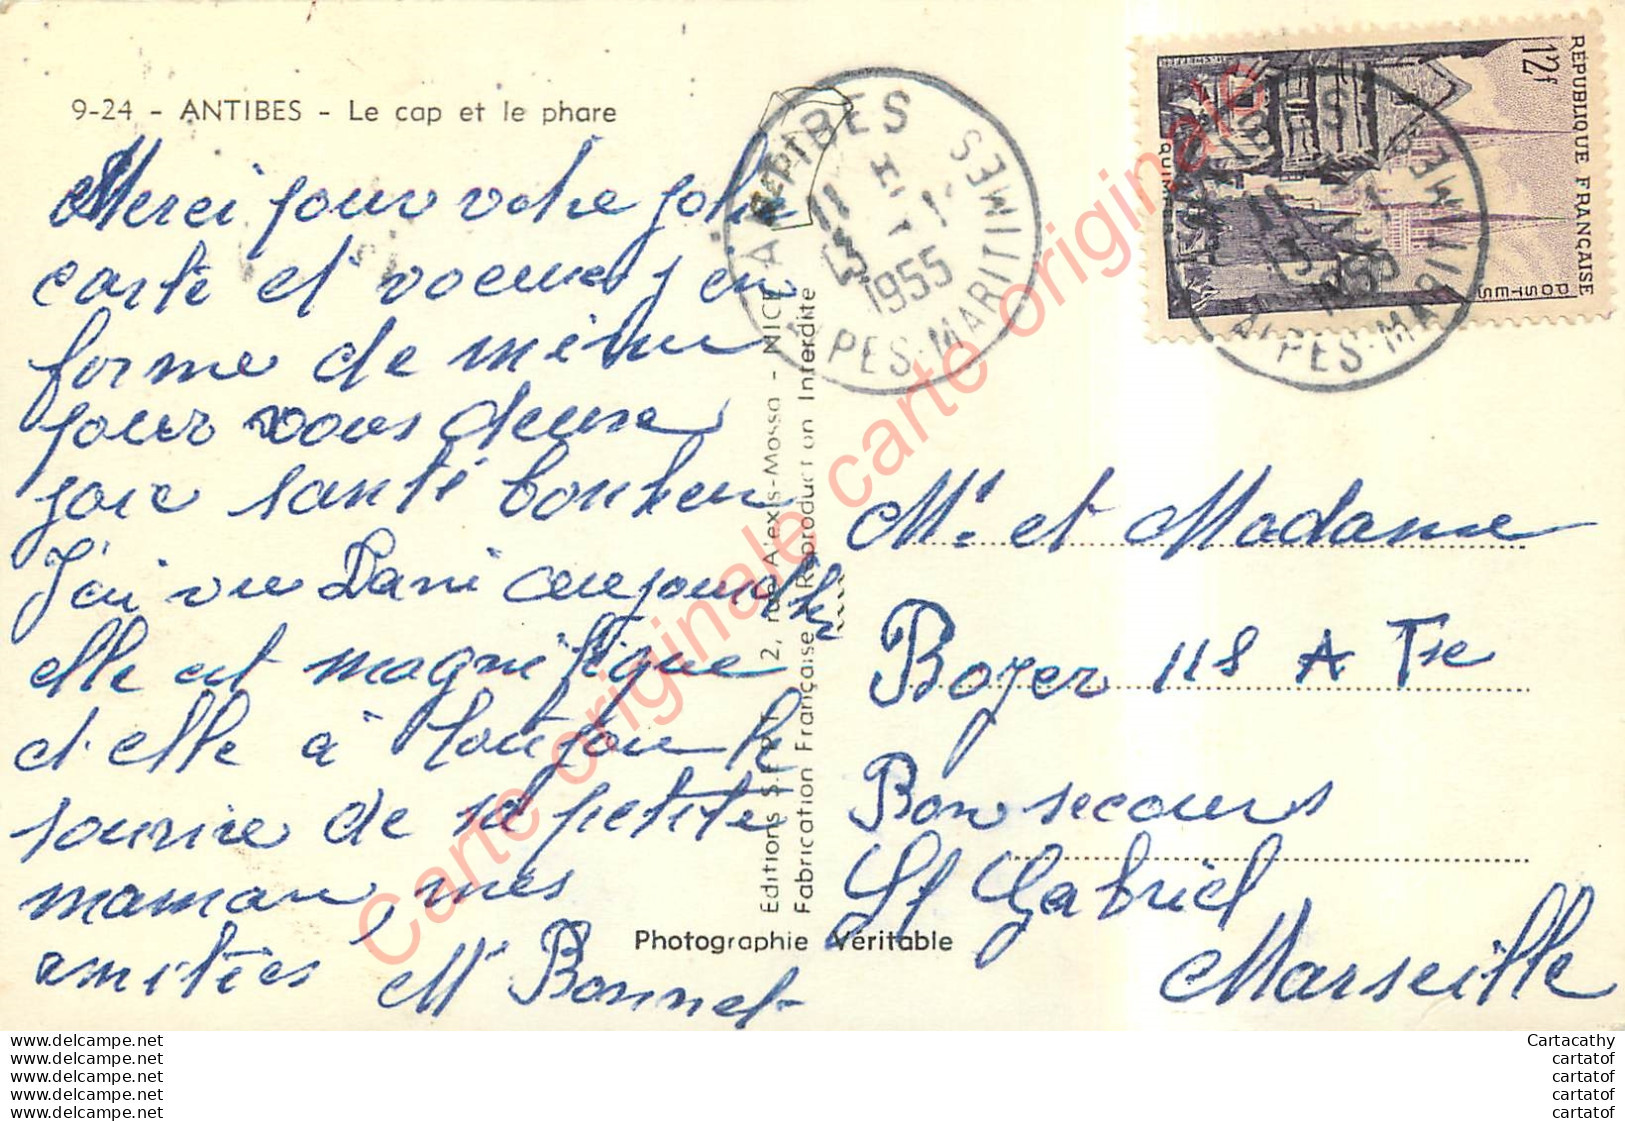 9-24 - ANTIBES - Le cap et le phare
Merci pour votre jolie
carte et voeux j'en
forme de même
pour vous deux
joie santé bonheur
J'ai vu Dani aujourd'hui
elle est magnifique
et elle a toujours le
sourire de sa petite
maman, mes
amitiés M Bonnet
Editions S.E.P.T. 2, rue Alexis-Mossa - NICE
Fabrication Française - Reproduction Interdite
Photographie Véritable
ANTIBES
ALPES-MARITIMES
1955
RÉPUBLIQUE FRANÇAISE
POSTES
12f
QUIMPER
ANTIBES
ALPES-MARITIMES
1955
Mr. et Madame
Boyer 118 A Tse
Bon secours
St Gabriel
Marseille
Carte originale carte originale
www.delcampe.net
www.delcampe.net
www.delcampe.net
www.delcampe.net
www.delcampe.net
Cartacathy
cartatof
cartatof
cartatof
cartatof